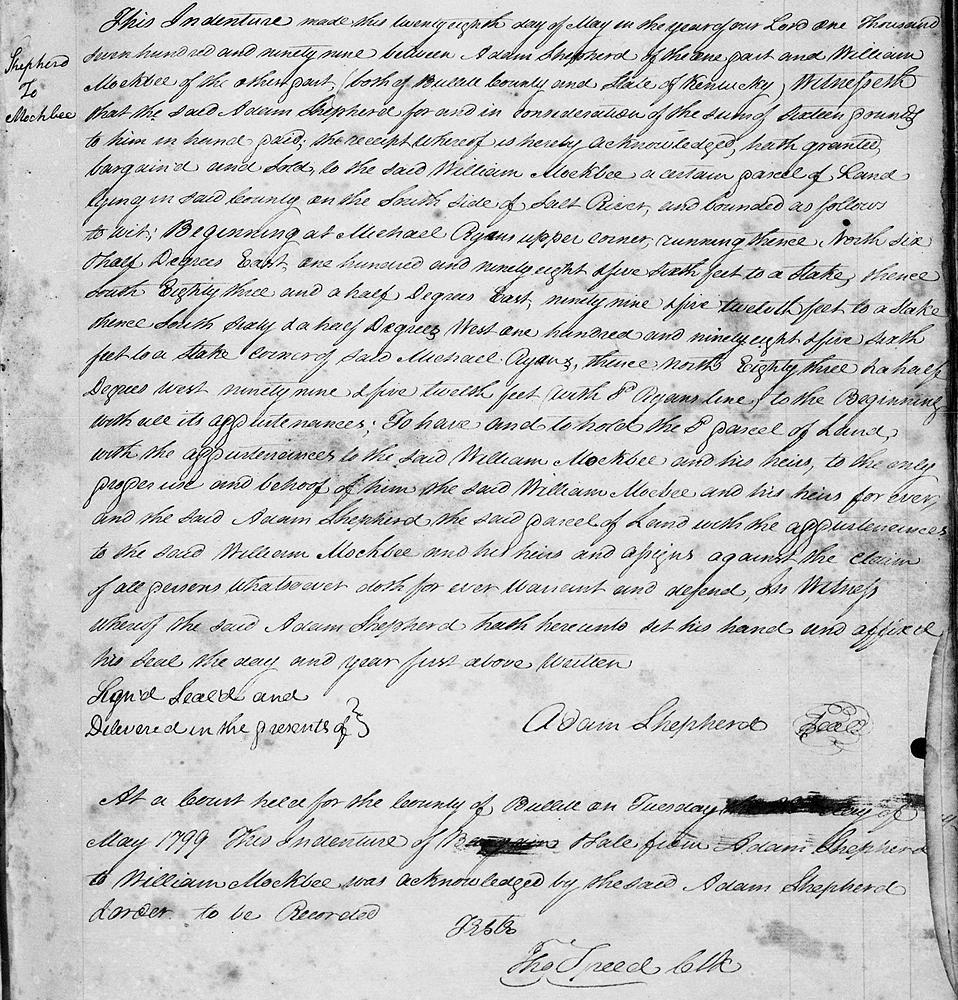 This Indenture made this twenty eighth day of May in the year of our Lord one Thousand
Shepherd
To
Mockbee
seven hundred and ninety nine between Adam Shepherd of the one part and William
Mockbee of the other part, (both of Bullitt County and State of Kentucky) Witnesseth
that the said Adam Shepherd for and in consideration of the sum of Sixteen pounds
to him in hand paid; the receipt whereof is hereby acknowledged, hath granted,
bargain'd and sold, to the said William Mockbee a certain parcel of Land
lying in said County on the South side of Salt River, and bounded as follows
to wit; Beginning at Michael Ryans upper corner, running thence North six
&half Degrees East, one hundred and ninety eight &five sixth feet to a Stake, thence
South Eighty three and a half Degrees East, ninety nine &five twelvth feet to a Stake
thence South sixty &a half Degrees West one hundred and ninety eight &five sixth
feet to a Stake corner of said Michael Ryans, thence North Eighty three &a half
Degrees west ninety nine &five twelth feet (with Sd Ryans line) to the Beginning
with all its appurtenances; To have and to hold the Sd parcel of Land,
with the appurtenances to the said William Mockbee and his heirs, to the only
proper use and behoof of him the said William Mocbee and his heirs for ever,
and the said Adam Shepherd the said parcel of Land with the appurtenances
to the said William Mockbee and his heirs and assigns against the claim
of all persons whatsoever doth for ever Warrant and defend, In Witness
whereof the said Adam Shepherd hath hereunto set his hand and affixed
his Seal the day and year first above Written
Sign'd Seal'd and
Delivered in the presents of
Adam Shepherd Seal
At a Court held for the County of Bullitt on Tuesday day of
May 1799 This Indenture of Bargain &Sale from Adam Shepherd
to William Mockbee was acknowledged by the said Adam Shepherd
&order to be Recorded
Teste
Tho. Speed Clk